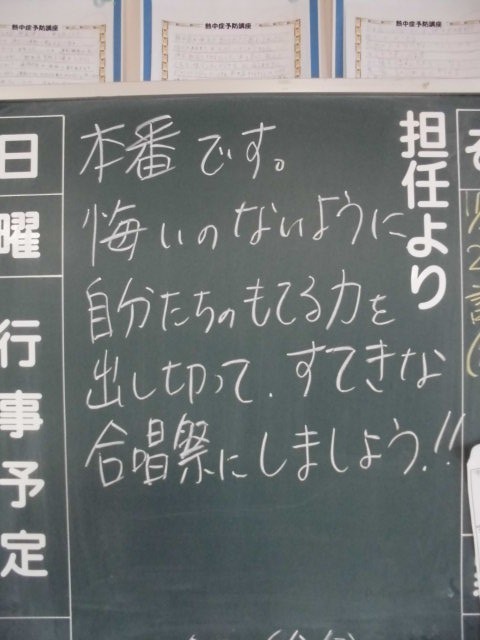 熱中症予防講座
熱中症予防講座
熱中症予防講座
担任より
本番です。
悔いのないように
自分たちのもてる力を
出し切って、すてきな
合唱祭にしましょう!!
日
曜
行事予定